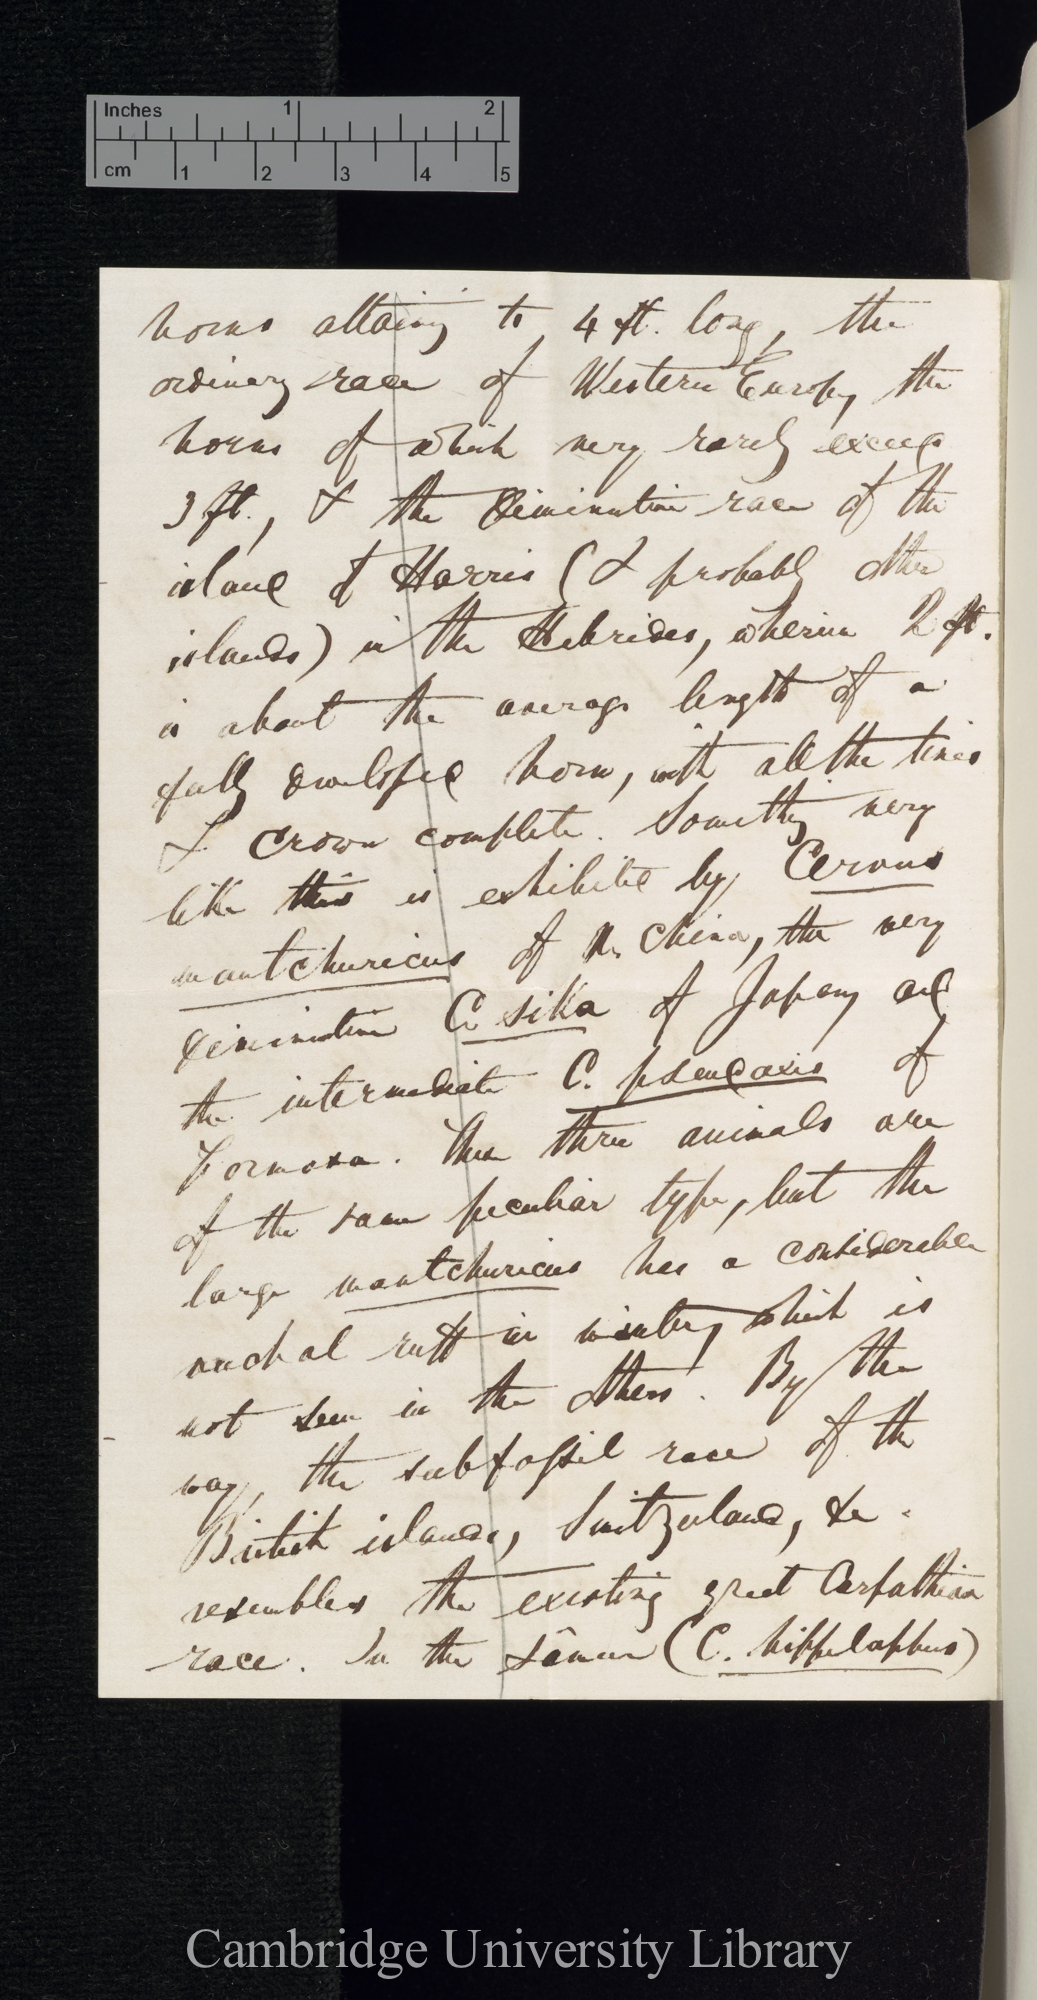 Inches 1 2
cm 1 2 3 4 5
horns attaing to 4 ft. long, the
ordinary race of Western Europe, the
horns of which very rarely exceed
3 ft., & the diminutive race of the
island of Harris (& probably other
islands) in the Hebrides, wherein 2 ft.
is about the average length of a
fully developed horn, with all the tines
& crown complete. Something very
like this is exhibited by Cervus
mantchuricus of N. China, the very
diminutive C. sika of Japan, and
the intermediate C. pseudaxis of
Formosa. These three animals are
of the same peculiar type, but the
large mantchuricus has a considerable
nuchal ruff in winter, which is
not seen in the others. By the
way, the subfossil race of the
British islands, Switzerland, &c.
resembles the existing great Carpathian
race. In the sâmur (C. hippelaphus)
Cambridge University Library